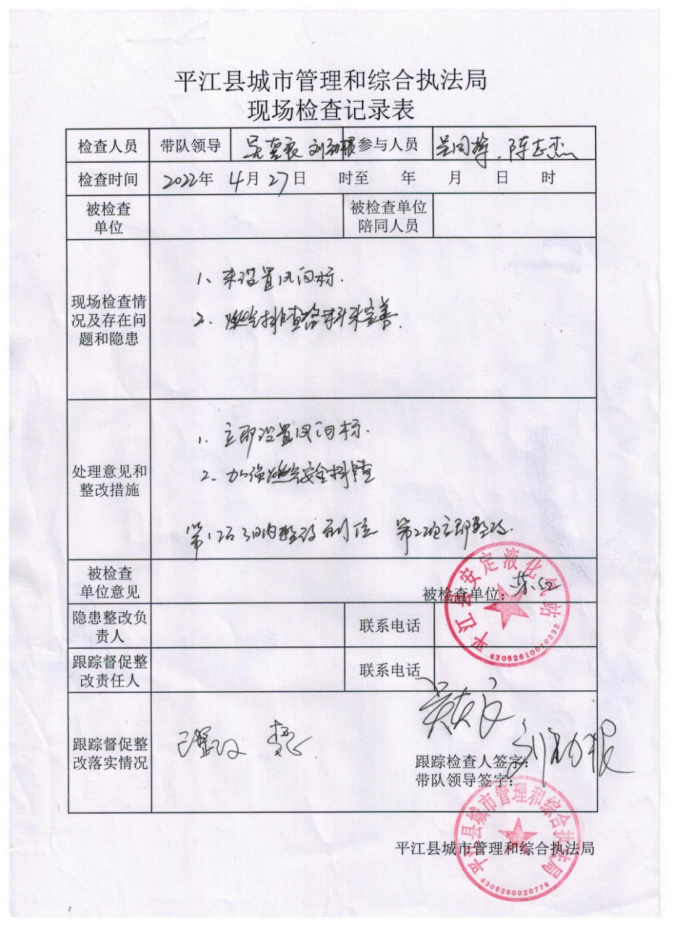 平江县城市管理和综合执法局
现场检查记录表
检查人员 带队领导 参与人员
检查时间 2022年 4月27日 时至 年 月 日 时
被检查单位 被检查单位陪同人员
现场检查情况及存在问题和隐患
1、未设置风向标.
2、燃气排查资料未完善.
处理意见和整改措施
1、立即设置风向标.
2、加强燃气安全排查
第1项3日内整改到位 第2项立即整改.
被检查单位意见
被检查单位:
平江县安定液化气站
43062610010232
隐患整改负责人 联系电话
跟踪督促整改责任人 联系电话
跟踪督促整改落实情况
跟踪检查人签字:
带队领导签字:
平江县城市管理和综合执法局
平江县城市管理和综合执法局
4306260020776